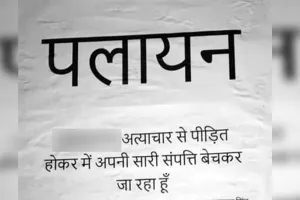 पलायन
अत्याचार से पीड़ित
होकर में अपनी सारी संपत्ति बेचकर
जा रहा हूँ